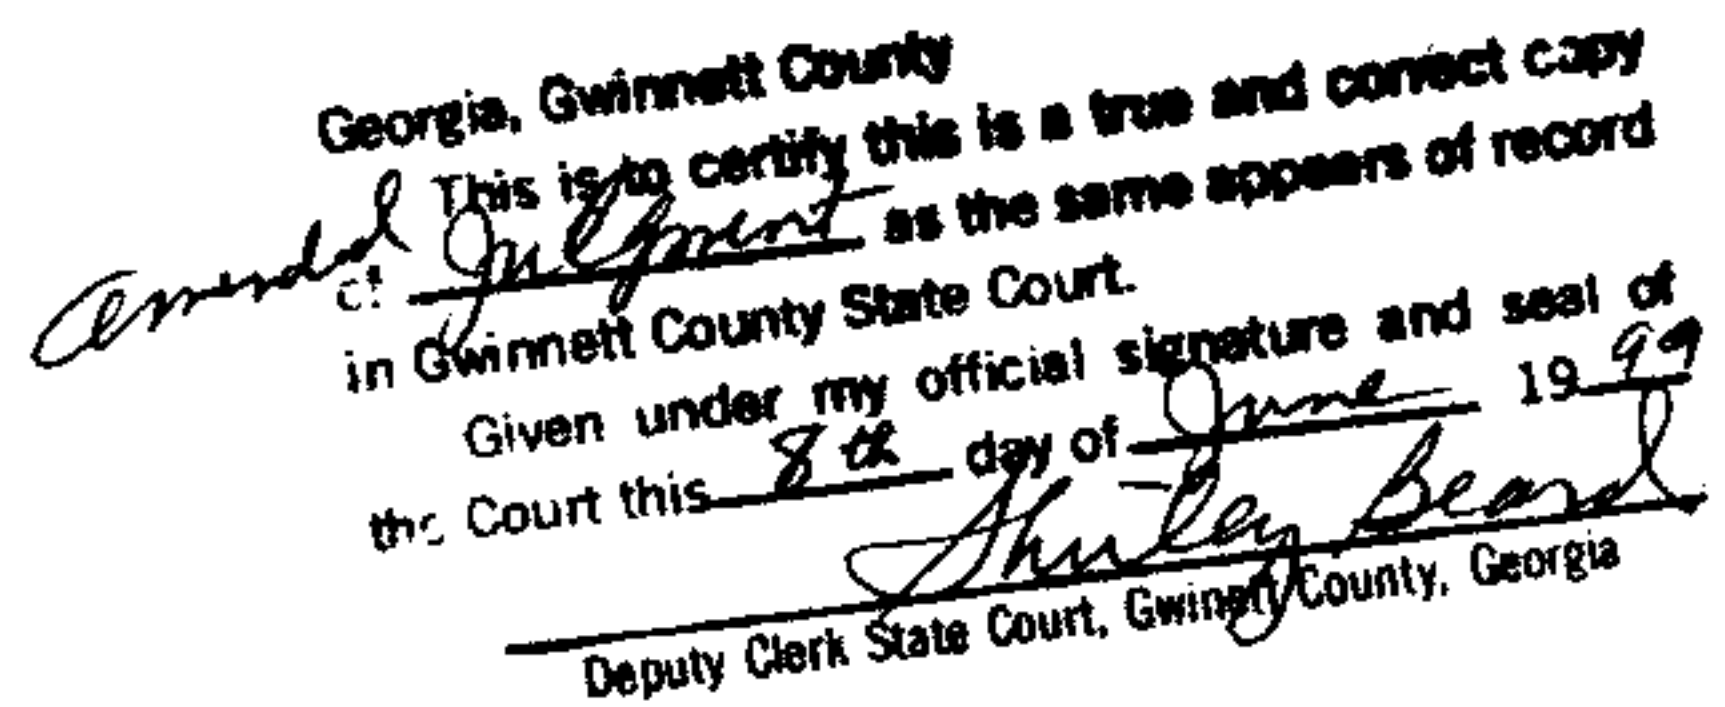 Georgia, Gwinnett County
This is to certify this is a true and correct copy
amended of Judgment as the same appears of record
in Gwinnett County State Court.
Given under my official signature and seal of
the Court this 8th day of June 1999
Shirley Beard
Deputy Clerk State Court, Gwinett County, Georgia